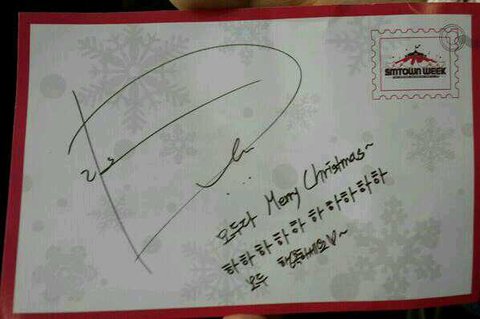 SMTOWN WEEK
모두다 Merry Christmas~
하하하하하하하하하하
모두 행복하세요♡~